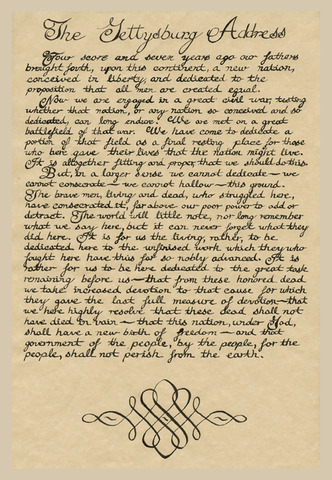 The Gettysburg Address
Four score and seven years ago our fathers
brought forth, upon this continent, a new nation,
conceived in liberty, and dedicated to the
proposition that all men are created equal.
Now we are engaged in a great civil war, testing
whether that nation, or any nation so conceived and so
dedicated, can long endure. We are met on a great
battlefield of that war. We have come to dedicate a
portion of that field as a final resting place for those
who here gave their lives that the nation might live.
It is altogether fitting and proper, that we should do this.
But, in a larger sense we cannot dedicate – we
cannot consecrate – we cannot hallow – this ground.
The brave men, living and dead, who struggled here,
have consecrated it, far above our poor power to add or
detract. The world will little note, nor long remember
what we say here, but it can never forget what they
did here. It is for us the living, rather, to be
dedicated here to the unfinised work which they who
fought here have thus far so nobly advanced. It is
rather for us to be here dedicated to the great task
remaining before us – that from these honored dead
we take increased devotion to that cause for which
they gave the last full measure of devotion – that
we here highly resolve that these dead shall not
have died in vain – that this nation, under God,
shall have a new birth of freedom – and that
government of the people, by the people, for the
people, shall not perish from the earth.